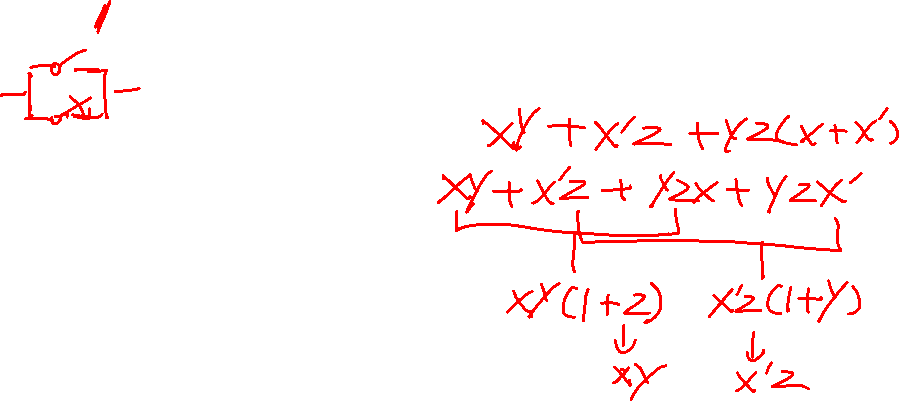 XY + X'Z + YZ(X+X')
XY + X'Z + YZX + YZX'
XY(1+Z) X'Z(1+Y)
XY X'Z